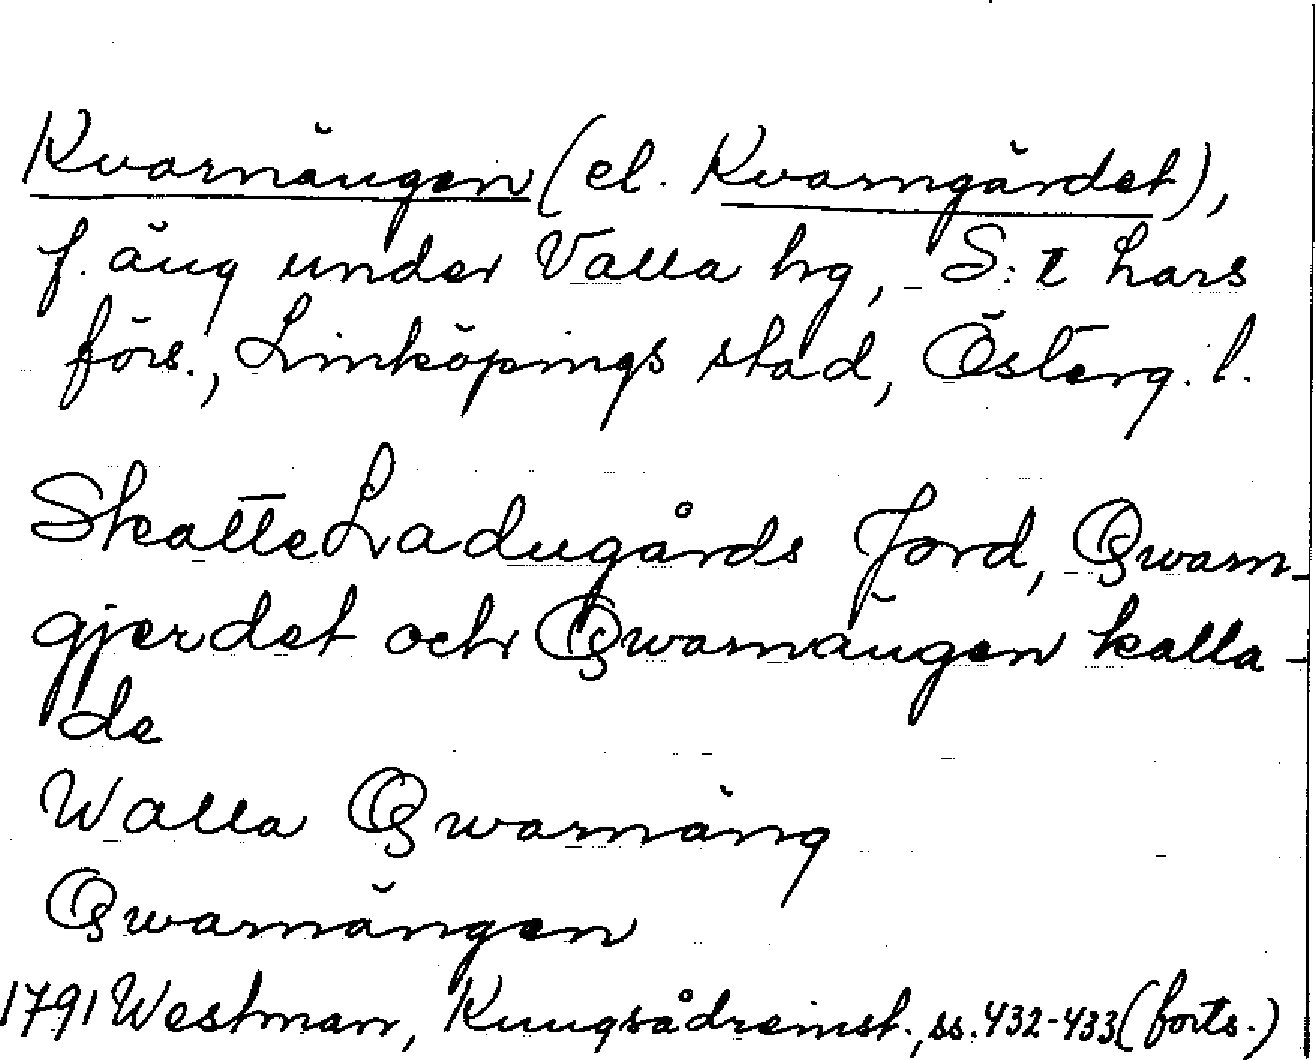 Kvarnängen (el. Kvarngärdet),
f. äng under Valla hg, S:t Lars
förs., Linköpings stad, Österg. l.
Skatte Ladugårds Jord, Qwarn-
gjerdet och Qwarnängen kalla-
de
Walla Qwarnäng
Qwarnängen
1791 Westman, Kungsådreinst., ss. 432-433 (forts.)